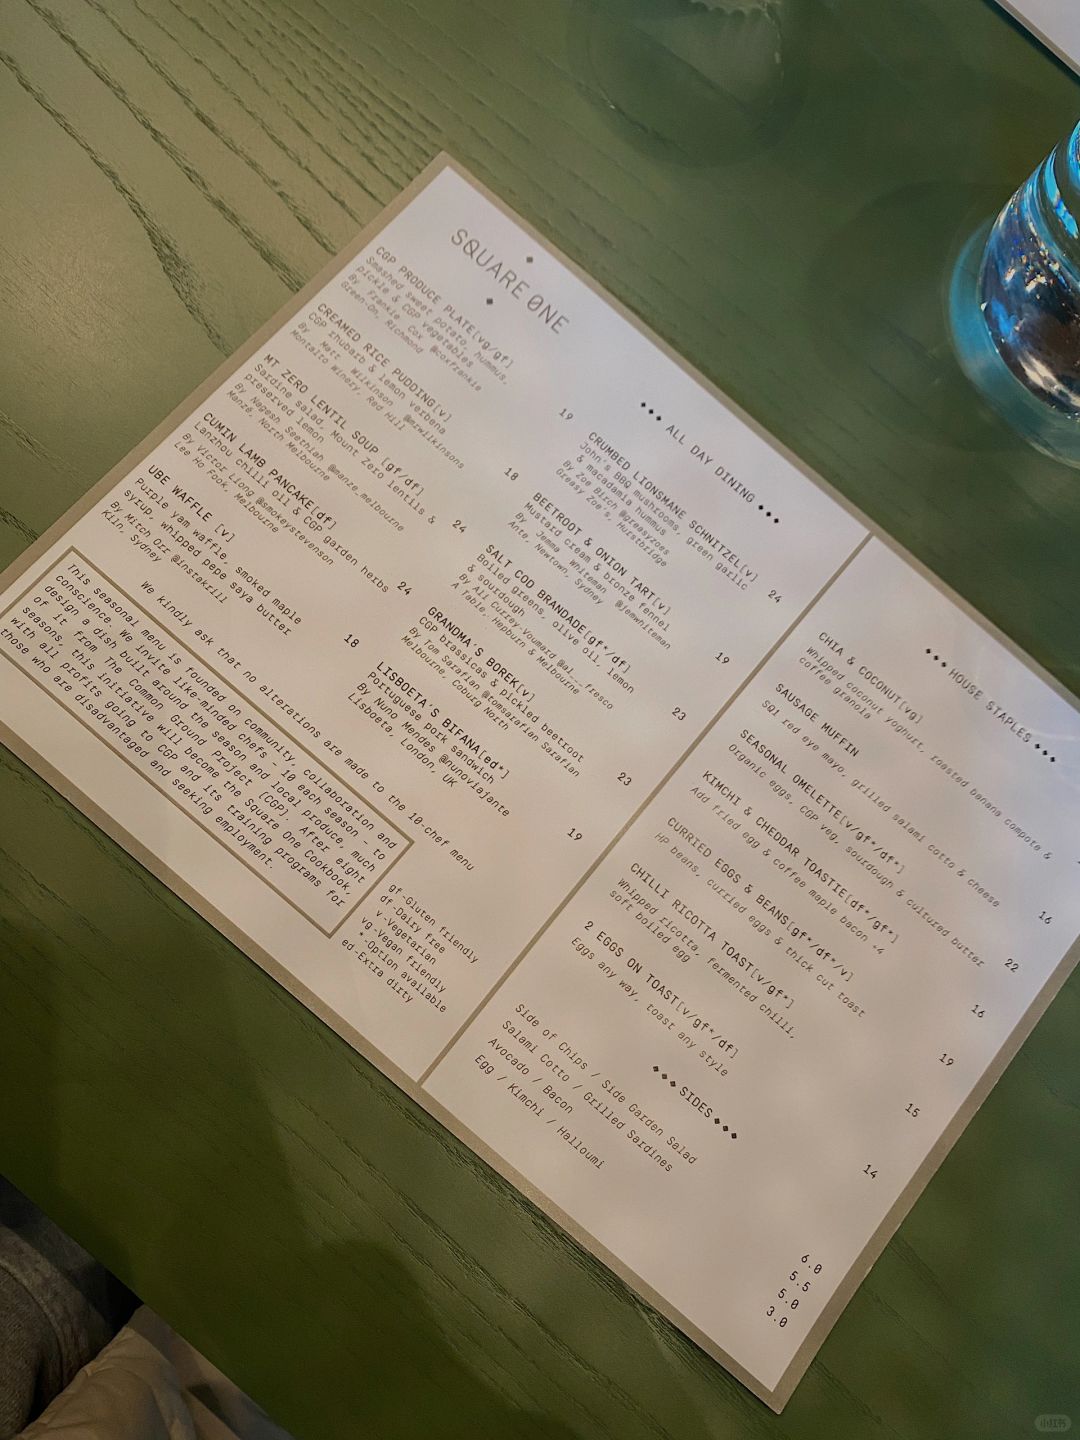 SQUARE ONE
◆◆◆ ALL DAY DINING ◆◆◆
CGP PRODUCE PLATE[vg/gf] 19
Smashed sweet potato, hummus,
pickle & CGP vegetables
By Frankie Cox @coxfrankie
Green-On, Richmond
CREAMED RICE PUDDING[v] 18
CGP rhubarb & lemon verbena
By Matt Wilkinson @mrwilkinsons
Montalto Winery, Red Hill
MT ZERO LENTIL SOUP [gf/df] 24
Sardine salad, Mount Zero lentils &
preserved lemon
By Nagesh Seethiah @manze_melbourne
Manzé, North Melbourne
CUMIN LAMB PANCAKE[df] 24
Lanzhou chilli oil & CGP garden herbs
By Victor Liong @smokeystevenson
Lee Ho Fook, Melbourne
UBE WAFFLE [v] 18
Purple yam waffle, smoked maple
syrup, whipped pepe saya butter
By Mitch Orr @instakrill
Kiln, Sydney
CRUMBED LIONSMANE SCHNITZEL[v] 24
John's BBQ mushrooms, green garlic
& macadamia hummus
By Zoe Birch @greasyzoes
Greasy Zoe's, Hurstbridge
BEETROOT & ONION TART[v] 19
Mustard cream & bronze fennel
By Jemma Whiteman @jemwhiteman
Ante, Newtown, Sydney
SALT COD BRANDADE[gf*/df] 23
Boiled greens, olive oil, lemon
& sourdough
By Ali Currey-Voumard @al__fresco
A Table, Hepburn & Melbourne
GRANDMA'S BOREK[v] 23
CGP brassicas & pickled beetroot
By Tom Sarafian @tomsarafian Sarafian
Melbourne, Coburg North
LISBOETA'S BIFANA[ed*] 19
Portuguese pork sandwich
By Nuno Mendes @nunoviajante
Lisboeta, London, UK
We kindly ask that no alterations are made to the 10-chef menu
This seasonal menu is founded on community, collaboration and
conscience. We invite like-minded chefs - 10 each season - to
design a dish built around the season and local produce, much
of it from The Common Ground Project (CGP). After eight
seasons, this initiative will become the Square One Cookbook,
with all profits going to CGP and its training programs for
those who are disadvantaged and seeking employment.
gf -Gluten friendly
df -Dairy free
v -Vegetarian
vg -Vegan friendly
* -Option available
ed -Extra dirty
◆◆◆ HOUSE STAPLES ◆◆◆
CHIA & COCONUT[vg]
Whipped coconut yoghurt, roasted banana compote &
coffee granola
SAUSAGE MUFFIN 16
SQ1 red eye mayo, grilled salami cotto & cheese
SEASONAL OMELETTE[v/gf*/df*] 22
Organic eggs, CGP veg, sourdough & cultured butter
KIMCHI & CHEDDAR TOASTIE[df*/gf*] 16
Add fried egg & coffee maple bacon +4
CURRIED EGGS & BEANS[gf*/df*/v] 19
HP beans, curried eggs & thick cut toast
CHILLI RICOTTA TOAST[v/gf*] 15
Whipped ricotta, fermented chilli,
soft boiled egg
2 EGGS ON TOAST[v/gf*/df] 14
Eggs any way, toast any style
◆◆◆ SIDES ◆◆◆
Side of Chips / Side Garden Salad 6.0
Salami Cotto / Grilled Sardines 5.5
Avocado / Bacon 5.0
Egg / Kimchi / Halloumi 3.0
小红书